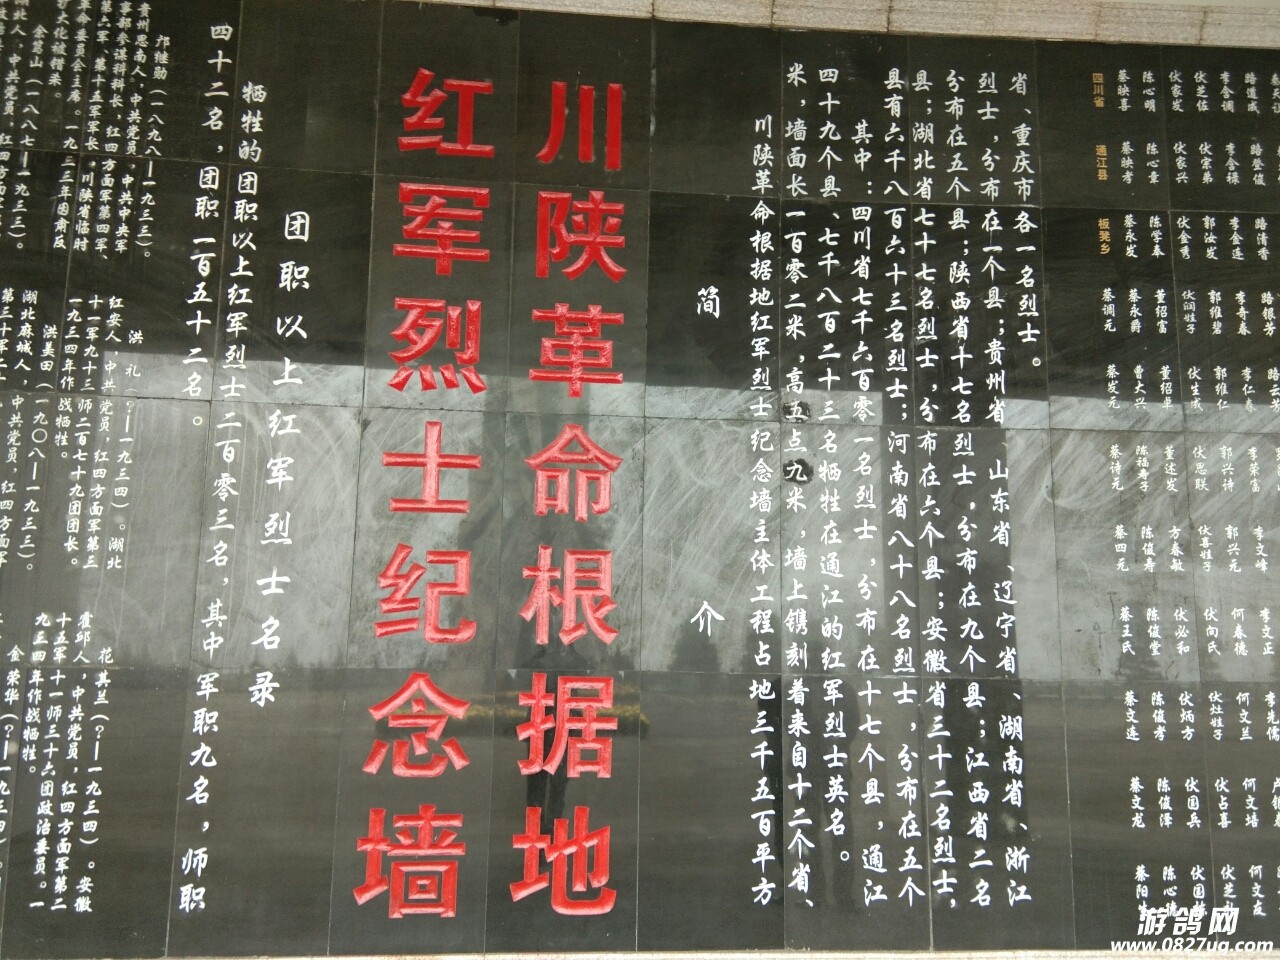 川陕革命根据地
红军烈士纪念墙
简介
川陕革命根据地红军烈士纪念墙主体工程占地三千五百平方
米，墙面长一百零二米，高五点九米，墙上镌刻着来自十二个省、
四十九个县、七千八百二十三名牺牲在通江的红军烈士英名。
其中：四川省七千六百零一名烈士，分布在十七个县，通江
县有六千八百六十三名烈士；河南省八十八名烈士，分布在五个
县；湖北省七十七名烈士，分布在六个县；安徽省三十二名烈士，
分布在五个县；陕西省十七名烈士，分布在九个县；江西省二名
烈士，分布在一个县；贵州省、山东省、辽宁省、湖南省、浙江
省、重庆市各一名烈士。
四川省 通江县 板凳乡
蔡映喜 蔡映孝 蔡永发 蔡调元 蔡发元 蔡诗元 蔡四元 蔡王氏 蔡文连 蔡文龙
陈心明 陈心章 陈学奉 蔡永爵 曹大兴 陈福寿子 陈俊寿 陈俊堂 陈俊孝 陈俊泽 陈心德
伏家发 伏家兴 伏金秀 董绍富 董绍军 董述发 方春敏 伏必和 伏炳方 伏国兵
伏芝佐 伏宗弟 郭汝发 伏闷姓子 伏生成 伏思联 伏喜姓子 伏向氏 伏灶姓子 伏占喜
李含调 李含禄 李金连 郭维碧 郭维仁 郭兴诗 郭兴元 何春德 何文兰 何文培 何文友
路道成 路登俊 路清香 李青春 李仁春 李荣富 李文峰 李文正 李先儒
路银芳
团职以上红军烈士名录
牺牲的团职以上红军烈士二百零三名，其中军职九名，师职
四十二名，团职一百五十二名。
邝继勋（一八九八—一九三三）。
贵州思南人，中共党员，中共中央军
事部参谋科科长，红四方面军第四军、
第六军、第十五军军长，川陕省临时
革命委员会主席。一九三三年因肃反
扩大化被错杀。
余笃山（一八八七—一九三三）。
洪礼（？—一九三四）。湖北
红安人，中共党员，红四方面军第三
十一军九十三师二百七十九团团长。
一九三四年作战牺牲。
洪美田（一九〇八—一九三三）。
湖北麻城人，中共党员，红四方面军
花其兰（？—一九三四）。安徽
霍邱人，中共党员，红四方面军第二
十五军十一师三十六团政治委员。一
九三四年作战牺牲。
金荣华（？—一九三四）。
游鸽网
www.0827ug.com